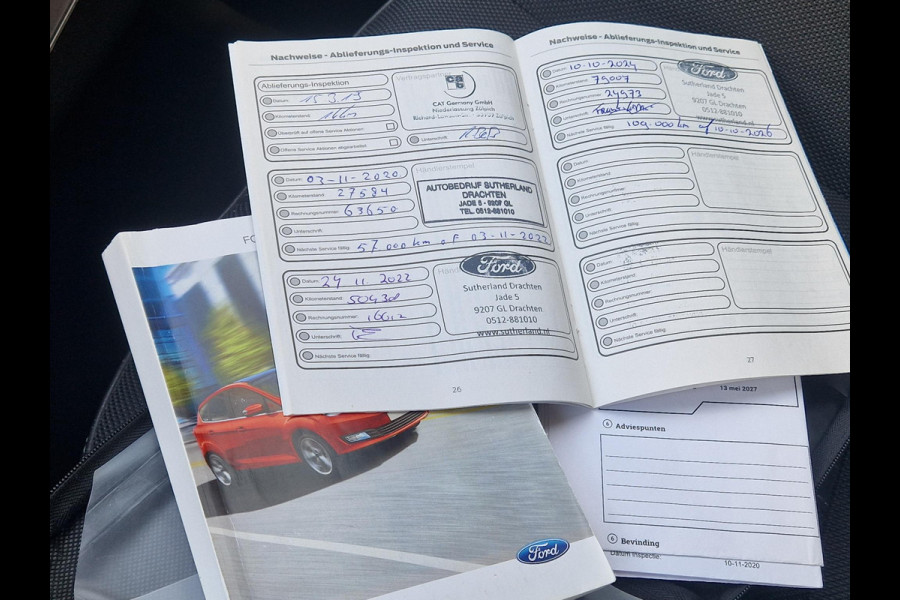 Nachweise - Ablieferungs-Inspektion und Service
Ablieferungs-Inspektion
Datum: 15.3.19
Kilometerstand:
Überprüft auf offene Service Aktionen
Offene Service Aktionen abgearbeitet
CAT Germany GmbH
Niederlassung Zülpich
Unterschrift:
Datum: 03-11-2020
Kilometerstand: 27584
Rechnungsnummer: 63650
Unterschrift:
Nächste Service fällig: 57.000 km of 03-11-2022
Händlerstempel
AUTOBEDRIJF SUTHERLAND
DRACHTEN
JADE 5 - 9207 GL
TEL. 0512-881010
Datum: 24 11 2022
Kilometerstand: 50438
Rechnungsnummer:
Unterschrift:
Nächste Service fällig:
Ford
Sutherland Drachten
Jade 5
9207 GL Drachten
0512-881010
www.sutherland.nl
26
Nachweise - Ablieferungs-Inspektion und Service
Datum: 10-10-2024
Kilometerstand: 79007
Rechnungsnummer: 24973
Unterschrift:
Nächste Service fällig: 109.000 km of 10-10-2026
Ford
Sutherland Drachten
Jade 5
9207 GL Drachten
0512-881010
www.sutherland.nl
Datum:
Kilometerstand:
Rechnungsnummer:
Unterschrift:
Nächste Service fällig:
Händlerstempel
Datum:
Kilometerstand:
Rechnungsnummer:
Unterschrift:
Nächste Service fällig:
Händlerstempel
27
FO
Ford
13 mei 2027
6 Adviespunten
6 Bevinding
Datum inspectie:
10-11-2020